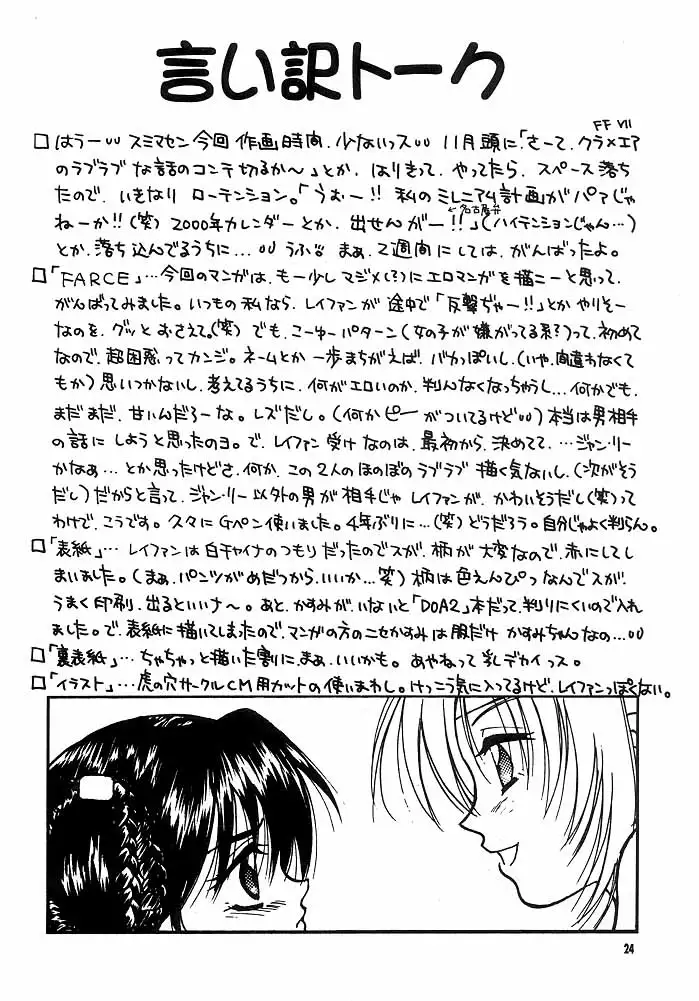 言い訳トーク
FF VII
□はうーUU スミマセン今回作画時間、少ないっスUU 11月頭に「さーて、クラ×エア
のラブラブな話のコンテ切るか〜」とか、はりきって、やってたら、スペース落ち
たので、いきなり ローテンション。「うぉー!! 私のミレニアム計画がパァじゃ
←名古屋弁
ねーか!!(笑) 2000年カレンダーとか、出せんがー!!」(ハイテンションじゃん…)
とか、落ち込んでるうちに…UU うふ まぁ、2週間にしては、がんばったよ。
□「FARCE」…今回のマンガは、もー少しマジメ(?)にエロマンガを描こーと思って、
がんばってみました。いつもの私なら、レイファンが途中で「反撃ぢゃー!!」とかやりそー
なのを、グッとおさえて。(笑) でも、こーゆーパターン(女の子が嫌がってる系?)って、初めて
なので、超困惑ってカンジ。ネームとか一歩まちがえば、バカっぽいし、(いや、間違わなくて
もか)思いつかないし、考えてるうちに、何がエロいのか、判んなくなっちゃうし…何かでも、
まだまだ、甘いんだろーな。レズだし。(何かピーがついてるけどUU)本当は男相手
の話にしようと思ったのヨ。で、レイファン受けなのは、最初から、決めてて、…ジャン・リー
かなぁ…とか思ったけどさ、何か、この2人のほのぼのラブラブ描く気ないし、(次がそう
だし)だからと言って、ジャン・リー以外の男が相手じゃレイファンが、かわいそうだし(笑)って
わけで、こうです。久々にGペン使いました。4年ぶりに…(笑)どうだろう。自分じゃよく判らん。
□「表紙」…レイファンは白チャイナのつもりだったのでスが、柄が大変なので、赤にしてし
まいました。(まぁ、パンツがめだつから、いいか…笑)柄は色えんぴつなんでスが、
うまく印刷、出るといいナ〜。あと、かすみが、いないと「DOA2」本だって、判りにくいので入れ
ました。で、表紙に描いてしまったので、マンガの方のニセかすみは服だけ かすみちゃんなの…UU
□「裏表紙」…ちゃちゃっと描いた割に、まぁ、いいかも。あやねって乳デカイっス。
□「イラスト」…虎の穴サークルCM用カットの使いまわし。けっこう気に入ってるけど、レイファンっぽくない。
24